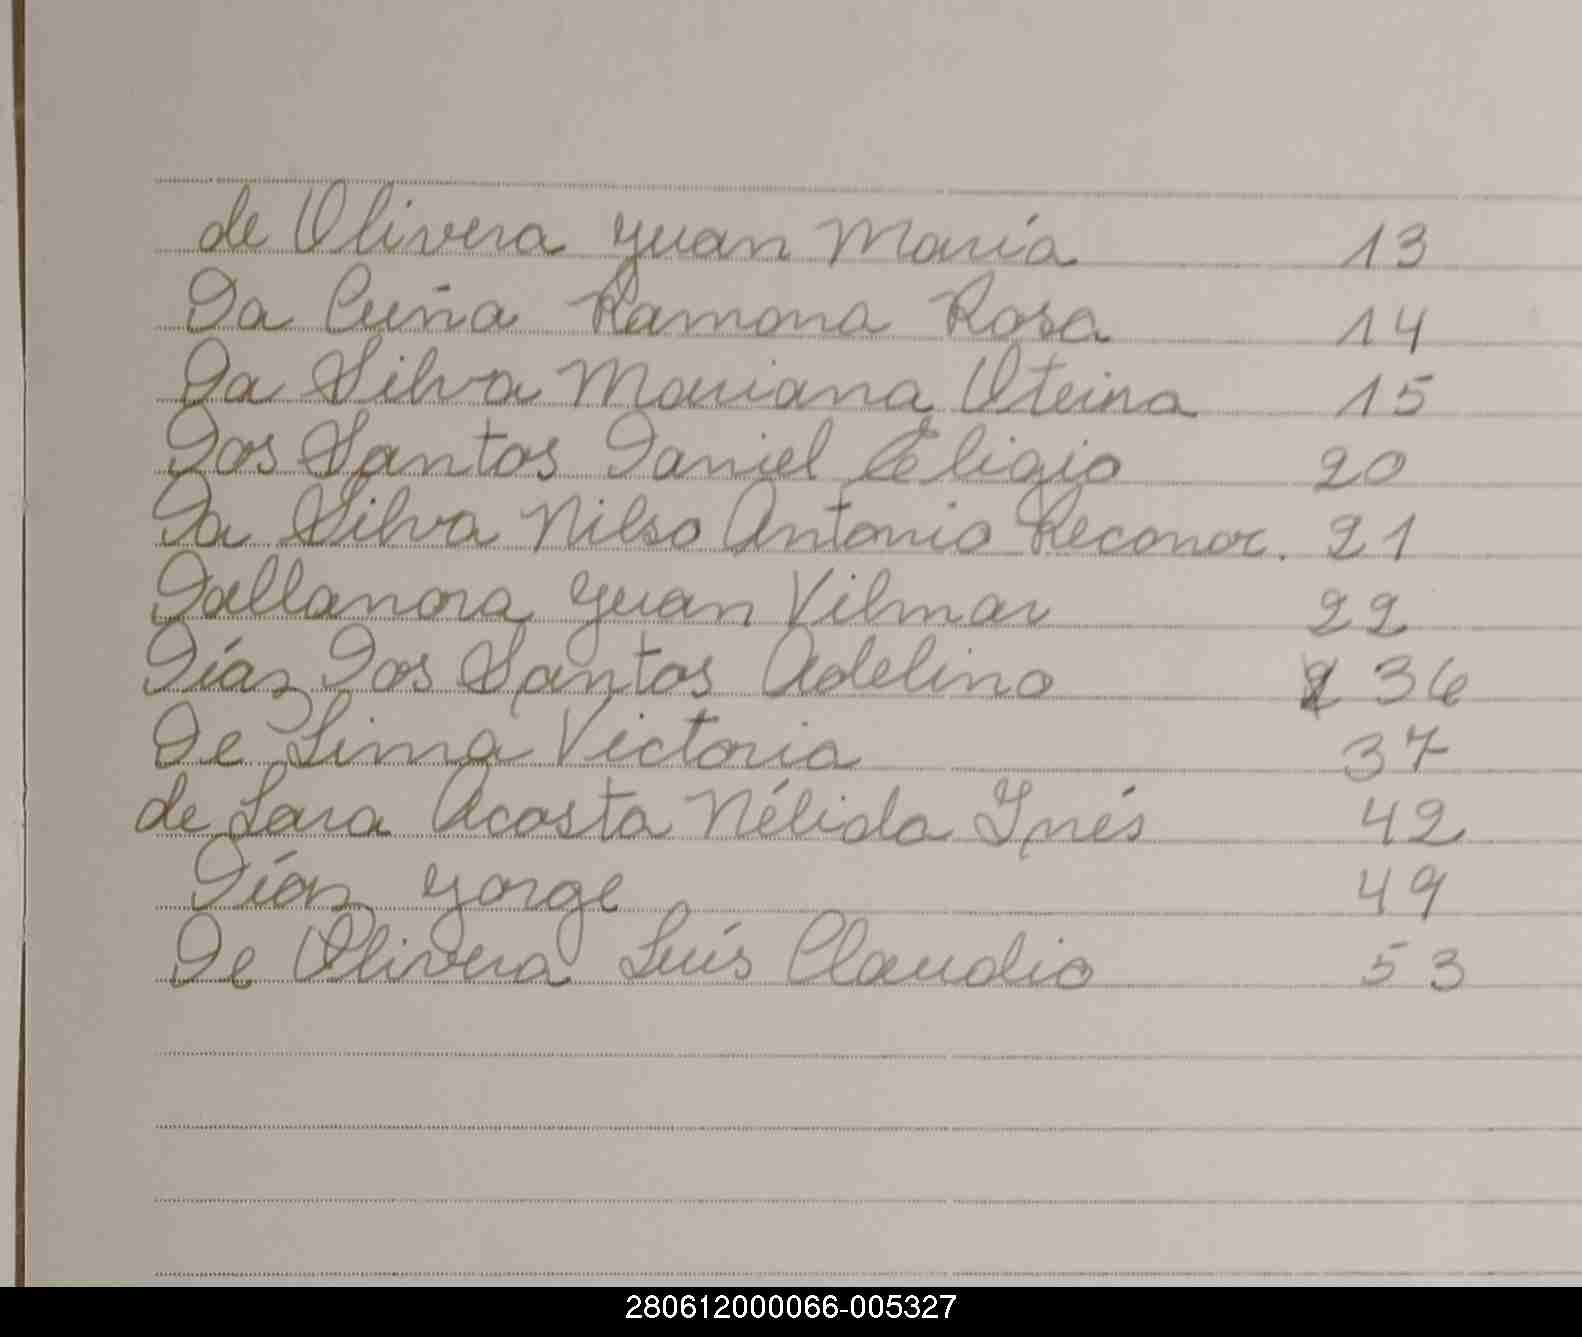 de Olivera Juan María 13
Da Cuña Ramona Rosa 14
Da Silva Mariana Oteina 15
Dos Santos Daniel Eligio 20
Da Silva Nilso Antonio Reconoc. 21
Dallanora Juan Vilmar 22
Díaz Dos Santos Adelino 36
De Lima Victoria 37
de Lara Acosta Nélida Inés 42
Díaz Jorge 49
De Olivera Luís Claudio 53
280612000066-005327